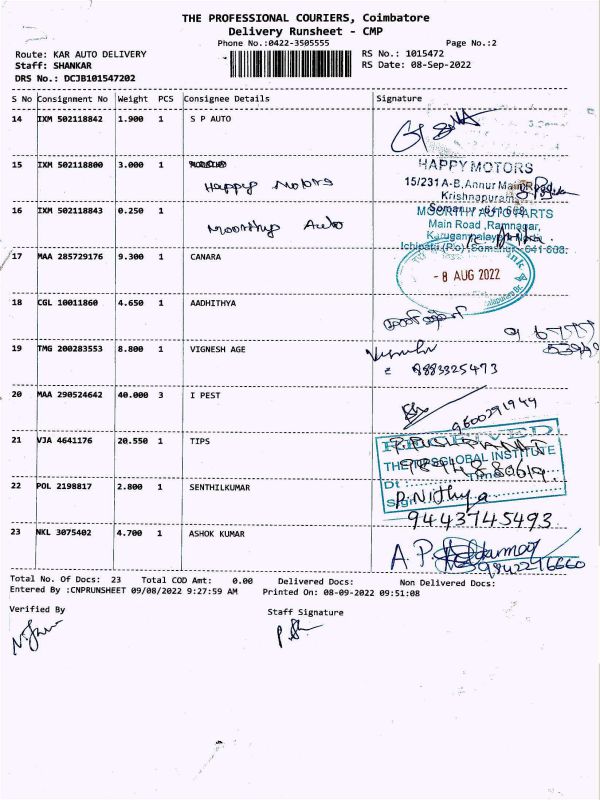 THE PROFESSIONAL COURIERS, Coimbatore
Delivery Runsheet - CMP
Phone No.:0422-3505555 Page No.:2
Route: KAR AUTO DELIVERY RS No.: 1015472
Staff: SHANKAR RS Date: 08-Sep-2022
DRS No.: DCJB101547202
S No Consignment No Weight PCS Consignee Details Signature
14 IXM 502118842 1.900 1 S P AUTO
15 IXM 502118800 3.000 1
Happy Motors
HAPPY MOTORS
15/231 A-B, Annur Main Road
Krishnapuram
16 IXM 502118843 0.250 1
Moorthy Auto
MOORTHY AUTO PARTS
Main Road, Ramnagar,
Karugampalayam
Ichipatti (P.o) Somanur - 641 668.
17 MAA 285729176 9.300 1 CANARA
- 8 AUG 2022
18 CGL 10011860 4.650 1 AADHITHYA
19 TMG 200283553 8.800 1 VIGNESH AGE
9883325473
20 MAA 290524642 40.000 3 I PEST
9600291944
21 VJA 4641176 20.550 1 TIPS
RECEIVED
THE TIPS GLOBAL INSTITUTE
Dt : Time
Sign
22 POL 2198817 2.800 1 SENTHILKUMAR
P. Nithya
9443745493
23 NKL 3075402 4.700 1 ASHOK KUMAR
9842296660
Total No. Of Docs: 23 Total COD Amt: 0.00 Delivered Docs: Non Delivered Docs:
Entered By :CNPRUNSHEET 09/08/2022 9:27:59 AM Printed On: 08-09-2022 09:51:08
Verified By Staff Signature